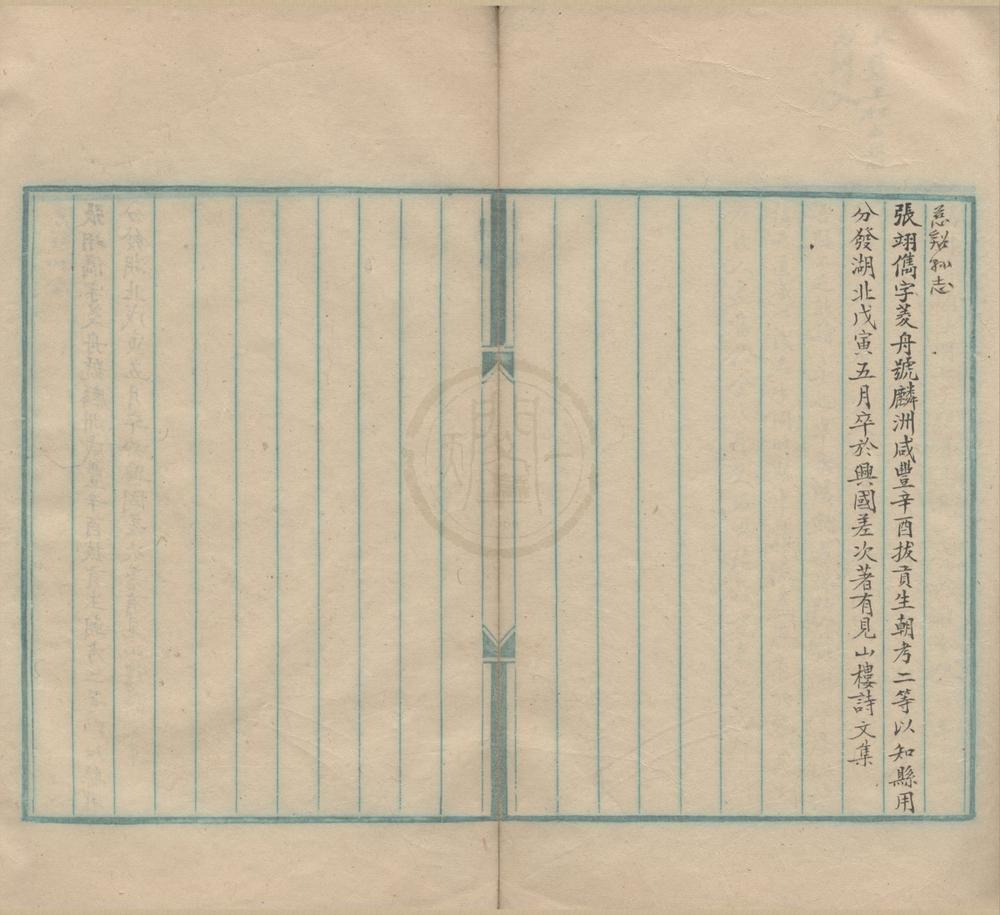 慈谿孙志
張翊儁字菱舟號麟洲咸豐辛酉拔貢生朝考二等以知縣用
分發湖北戊寅五月卒於興國差次著有見山樓詩文集